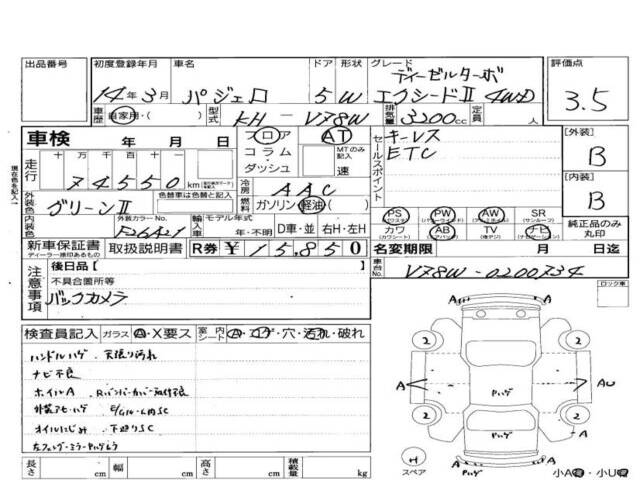 出品番号 初度登録年月 車名 ドア 形状 グレード 評価点
14年3月 パジェロ 5 W ディーゼルターボ
エクシードⅡ 4WD 3.5
車歴 自家用・( ) 型式 KH－V78W 排気量 3200cc 定員 人
車検 年 月 日 フロア AT セールスポイント キーレス [外装]
走行 十万 万 千 百 十 コラム MTのみ記入 ETC B
74550km ダッシュ 速
冷房 AAC [内装]
外装色 グリーンⅡ 色替車は色替と記入 燃料 ガソリン 軽油 ( ) B
内装色 外装カラーNo. 輸入車 モデル年式 PS PW AW SR
年・不明 D車・並 右H・左H カワ AB TV ナビ 純正品のみ丸印
新車保証書 取扱説明書 R券 ¥15,850 名変期限 月 日迄
ディーラー捺印あるもの
注意事項 後日品[ ] 車台No. V78W-0200734
不具合箇所等 ロック車
バックカメラ
検査員記入 ガラス A・X要ス 室内シート A・コゲ・穴・汚れ・破れ
ハンドルハゲ 天張り汚れ
ナビ不良
ホイルA Rバンパーカバー取付不良
外装アセ・ハゲ
オイルにじみ 下廻りSC
左フェンダーミラーヤハゲ
A A
2 2
A ヤハゲ A AU
2 2
ヤハゲ
H スペア A ヤハゲ A 小A 小U
長さ cm 幅 cm 高さ cm 積載量 kg
現在色を記入